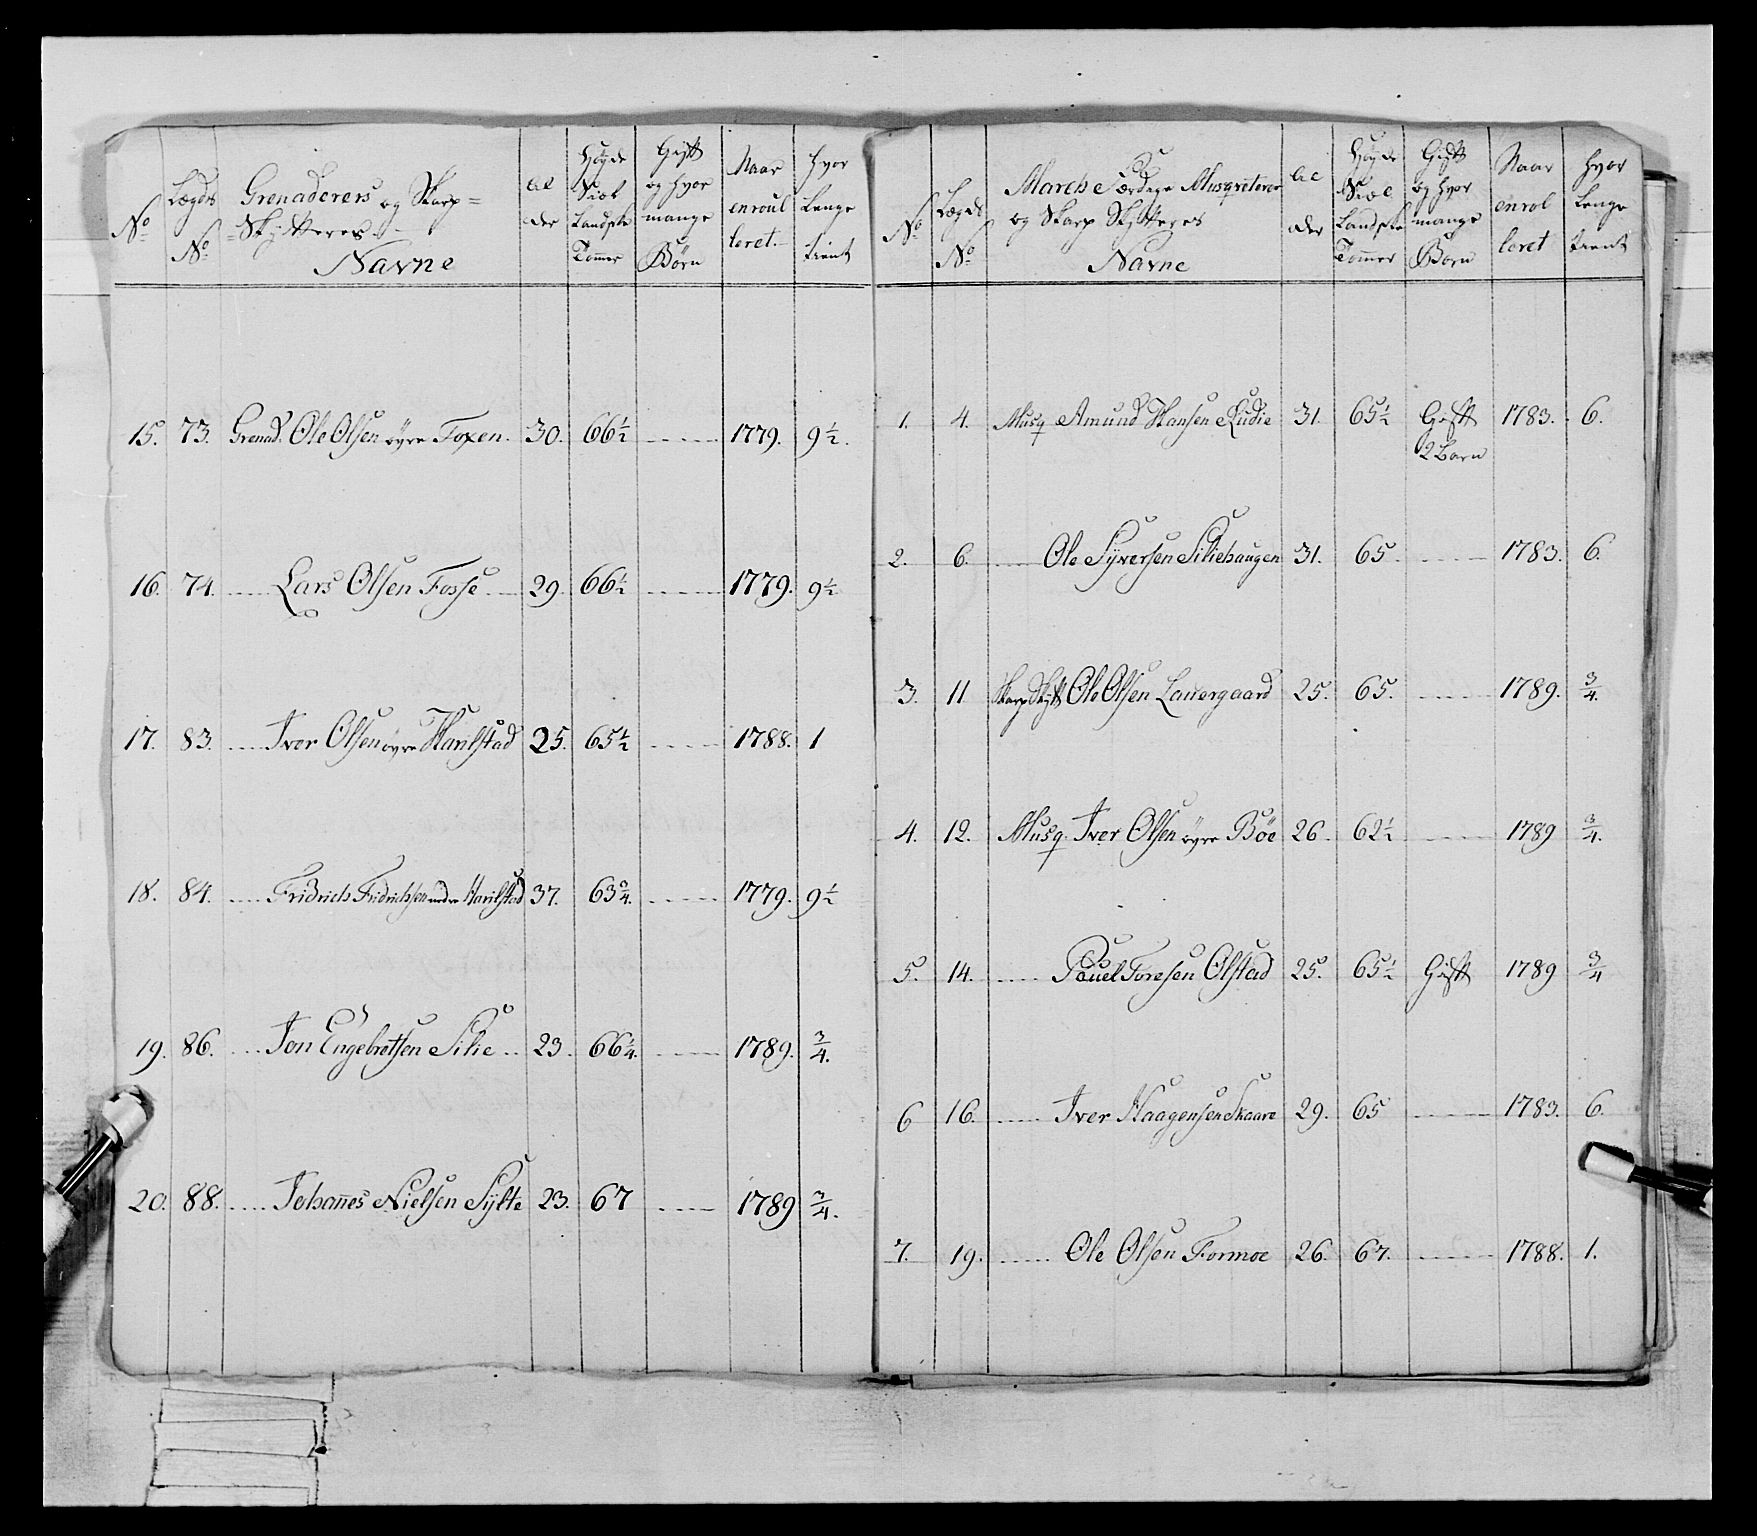 No
Lægds No
Grenaderers og Skarp=
=Skytteres
Navne
Al der
Høyde
Landske
Tommer
Gift og hvor mange Børn
Naar enroulleret
hvor Lenge tient
15. 73. Grenad. Ole Olsen øvre Foxen. 30. 66½ 1779. 9½.
16. 74. Lars Olsen Fosse 29. 66½ 1779. 9½
17. 83. Iver Olsen øvre Harilstad 25. 65½ 1788. 1
18. 84. Fridrich Fridrichsen nedre Harilstad 37. 63¾. 1779. 9½
19. 86. Jon Engebretsen Silie 23. 66¼. 1789. ¾.
20. 88. Johannes Nielsen Sylte 23. 67 1789 ¾.
No
Lægds No
Marche Færdige Musqveterer
og Skarp Skytteres
Navne
Al der
Høyde
Landske
Tommer
Gift og hvor mange Børn
Naar enrolleret
hvor Lenge tient
1. 4. Musq Amund Hansen Rudie 31. 65½ Gift 1783. 6.
2 Barn
2. 6. Ole Syversen Siliehaugen 31. 65. 1783. 6.
3. 11 Skarp Skytt Ole Olsen Lauergaard 25. 65. 1789. ¾
4. 12. Musq. Iver Olsen øvre Bøe 26. 62½ 1789 ¾.
5. 14. Pouel Toresen Olstad 25. 65½ Gift 1789 ¾
6 16. Iver Haagensen Skaare 29. 65 1783. 6.
7. 19. Ole Olsen Formoe 26. 67. 1788. 1.